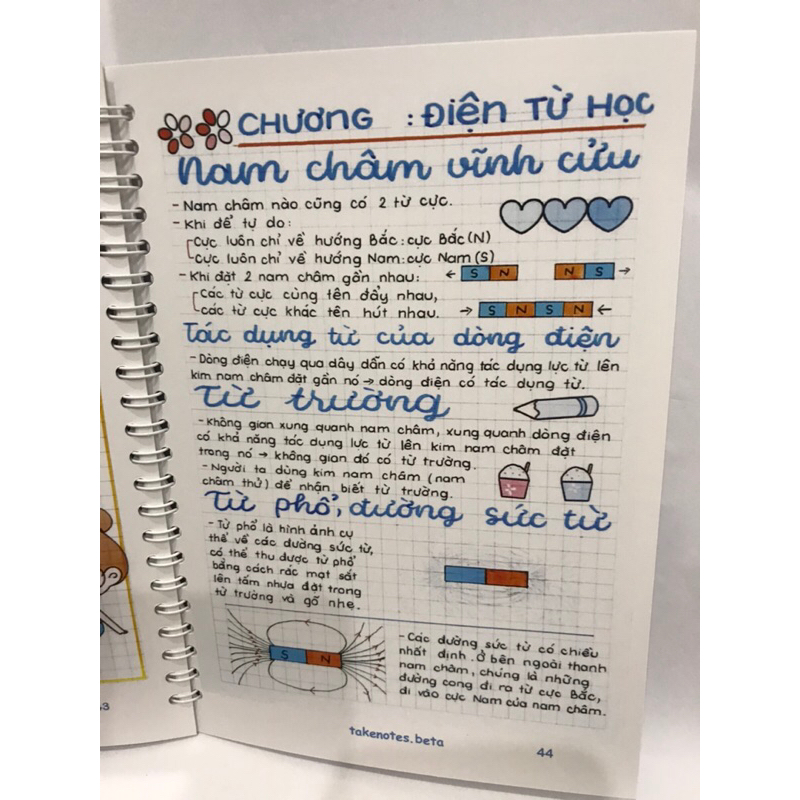 CHƯƠNG : ĐIỆN TỪ HỌC
Nam châm vĩnh cửu
- Nam châm nào cũng có 2 từ cực.
- Khi để tự do:
Cực luôn chỉ về hướng Bắc: cực Bắc (N)
Cực luôn chỉ về hướng Nam: cực Nam (S)
- Khi đặt 2 nam châm gần nhau:
← S N N S →
Các từ cực cùng tên đẩy nhau,
các từ cực khác tên hút nhau.
→ S N S N ←
Tác dụng từ của dòng điện
- Dòng điện chạy qua dây dẫn có khả năng tác dụng lực từ lên
kim nam châm đặt gần nó → dòng điện có tác dụng từ.
Từ trường
- Không gian xung quanh nam châm, xung quanh dòng điện
có khả năng tác dụng lực từ lên kim nam châm đặt
trong nó → không gian đó có từ trường.
- Người ta dùng kim nam châm (nam
châm thử) để nhận biết từ trường.
Từ phổ, đường sức từ
- Từ phổ là hình ảnh cụ
thể về các đường sức từ,
có thể thu được từ phổ
bằng cách rắc mạt sắt
lên tấm nhựa đặt trong
từ trường và gõ nhẹ.
S N
- Các đường sức từ có chiều
nhất định. Ở bên ngoài thanh
nam châm, chúng là những
đường cong đi ra từ cực Bắc,
đi vào cực Nam của nam châm.
takenotes.beta
44